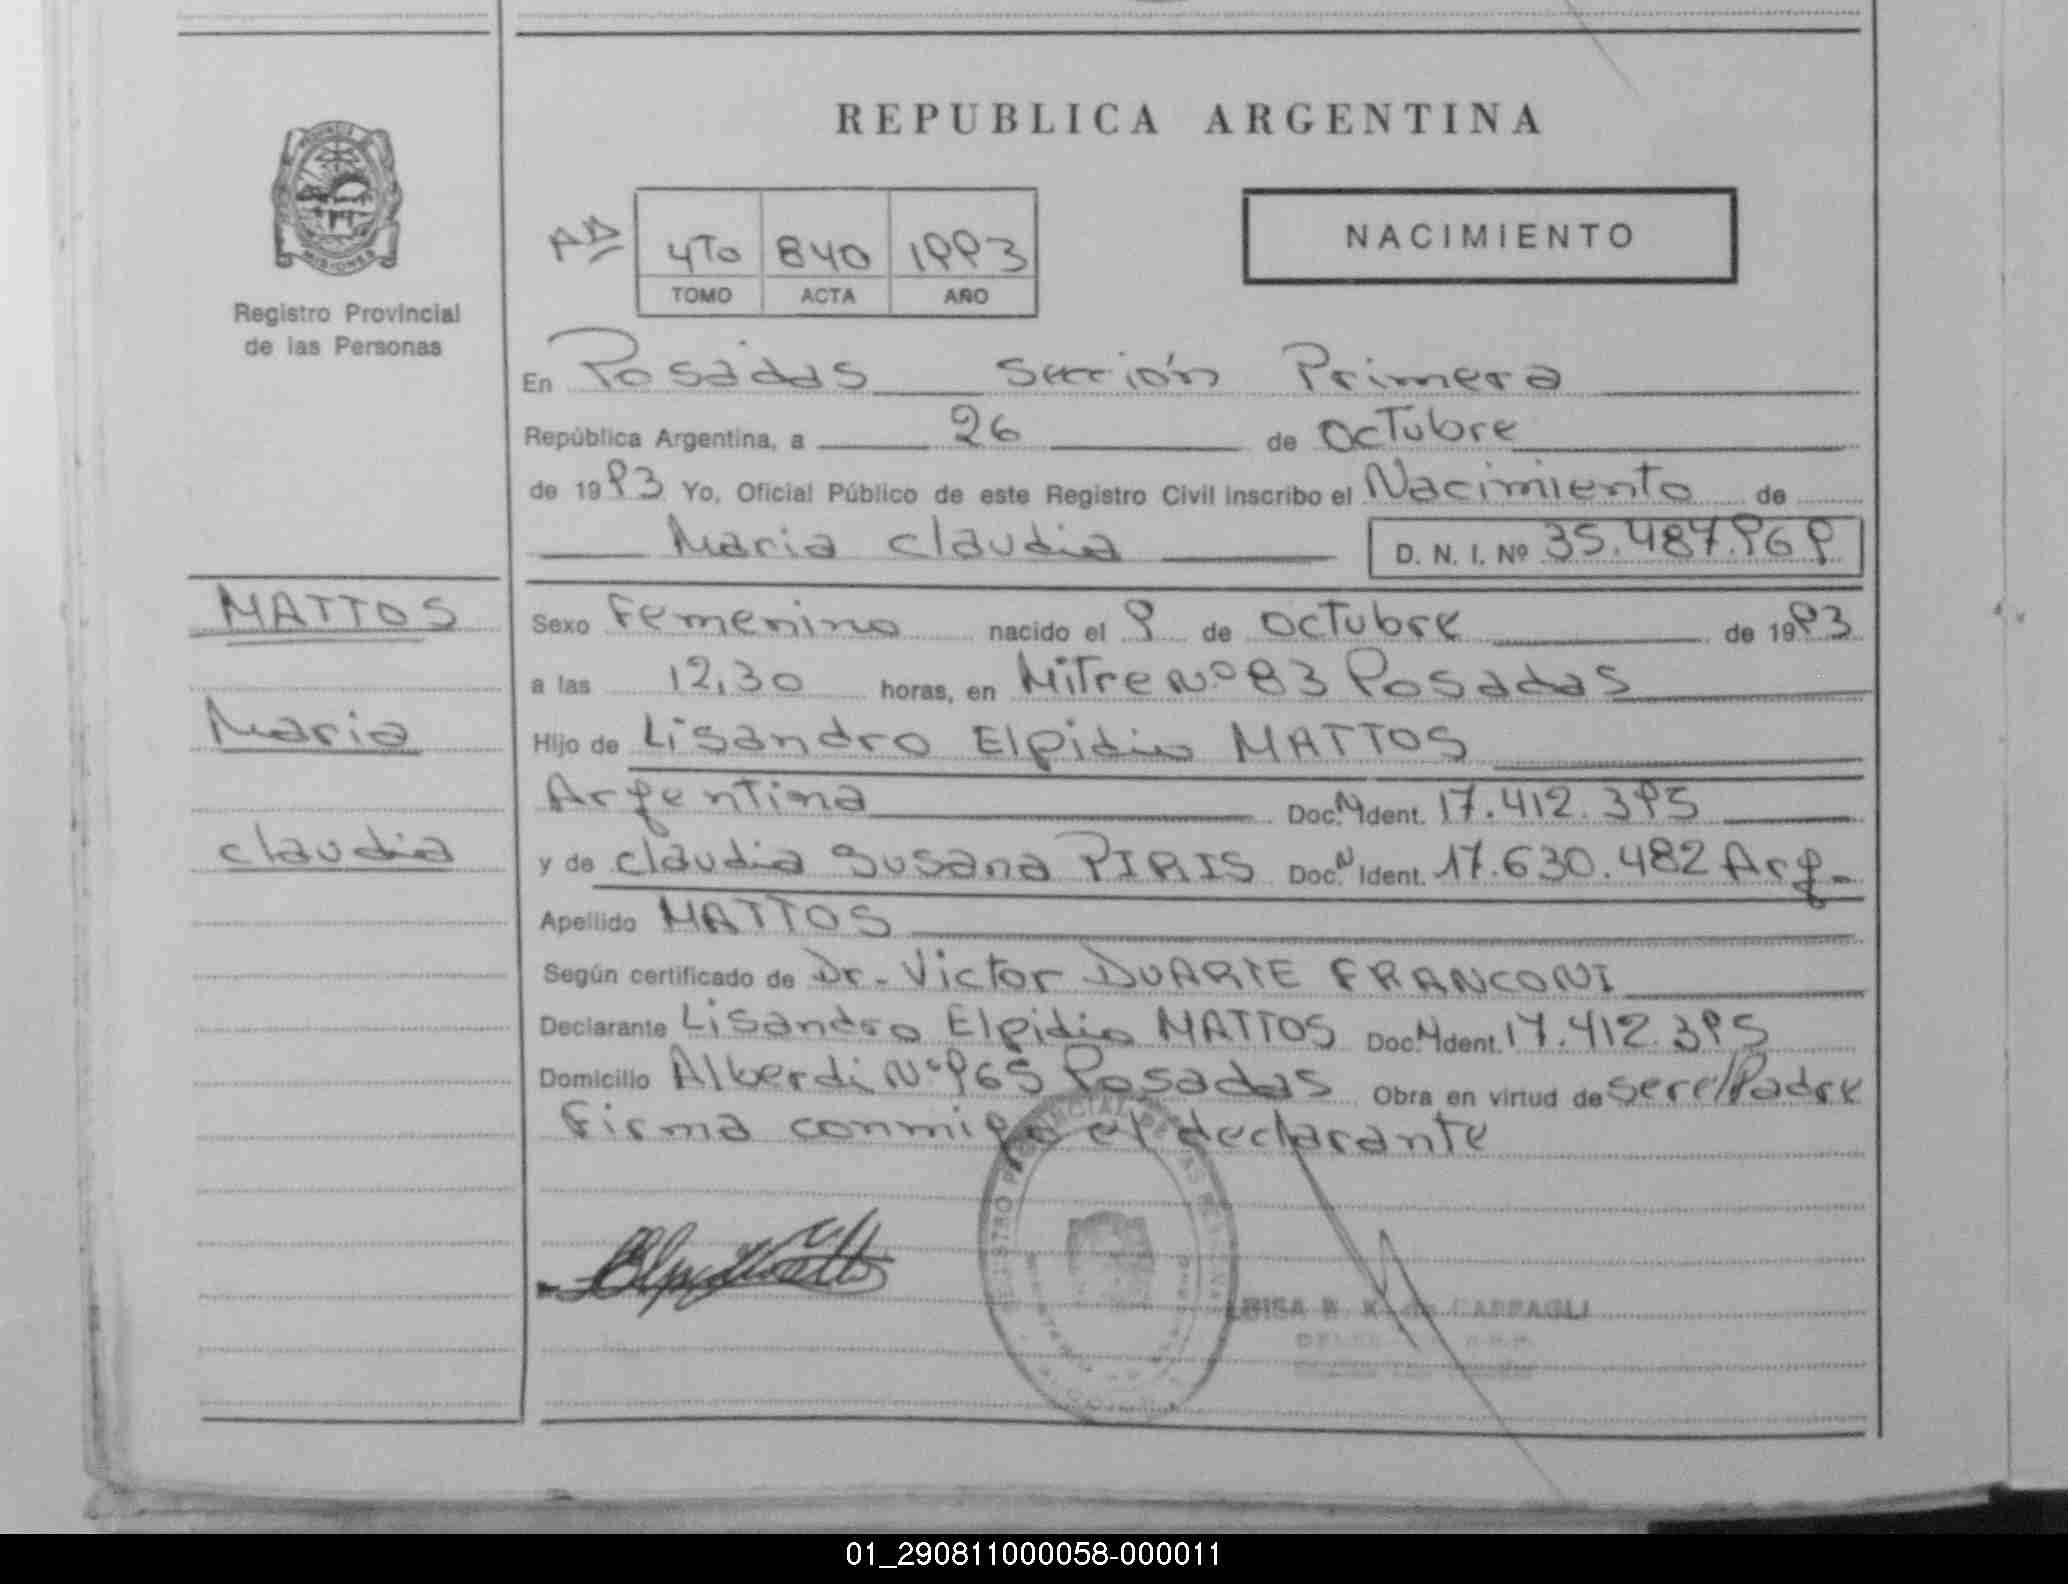 REPUBLICA ARGENTINA
MISIONES
Registro Provincial
de las Personas
AD
4To 840 1993
TOMO ACTA AÑO
NACIMIENTO
En Posadas Sección Primera
República Argentina, a 26 de Octubre
de 1993 Yo, Oficial Público de este Registro Civil inscribo el Nacimiento de
Maria Claudia D. N. I. Nº 35.487.969
MATTOS
Maria
Claudia
Sexo Femenino nacido el 9 de Octubre de 1993
a las 12,30 horas, en Mitre Nº 83 Posadas
Hijo de Lisandro Elpidio MATTOS
Argentina Doc. N Ident. 17.412.395
y de Claudia Susana PIRIS Doc. N Ident. 17.630.482 Arg.
Apellido MATTOS
Según certificado de Dr. Victor DUARTE FRANCONI
Declarante Lisandro Elpidio MATTOS Doc. N Ident. 17.412.395
Domicilio Alberdi Nº 965 Posadas Obra en virtud de ser el Padre
Firma conmigo el declarante
01_290811000058-000011